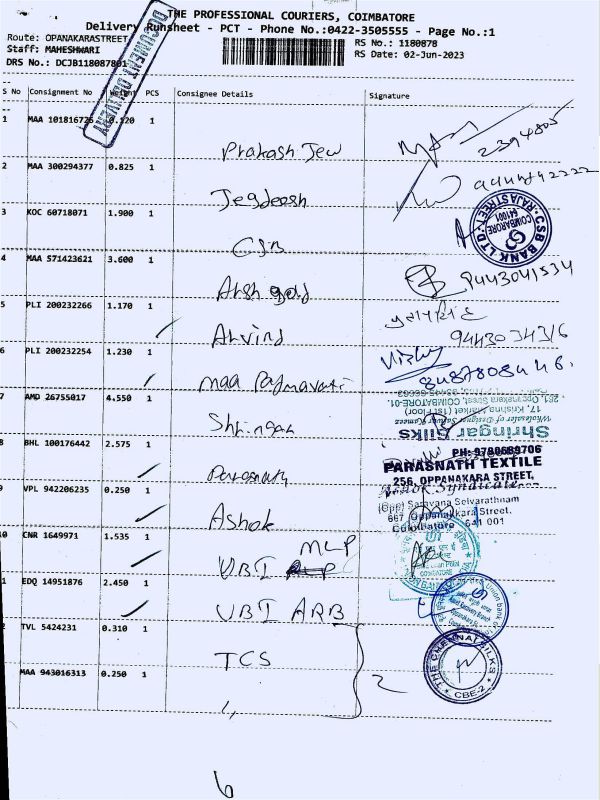 THE PROFESSIONAL COURIERS, COIMBATORE
Delivery Runsheet - PCT - Phone No.:0422-3505555 - Page No.:1
Route: OPANAKARASTREET
RS No.: 1180878
Staff: MAHESHWARI
RS Date: 02-Jun-2023
DRS No.: DCJB118087801
DOCUMENT DELIVERY
S No Consignment No Weight PCS Consignee Details Signature
1 MAA 101816726 0.120 1 Prakash Jew
2394805
2 MAA 300294377 0.825 1 Jegdeesh
3 KOC 60718071 1.900 1 CSB
CSB BANK LTD. RAJASTREET COIMBATORE 641001
4 MAA 571423621 3.600 1 Arsh gold 9443041534
5 PLI 200232266 1.170 1 Arvind
9443034316
6 PLI 200232254 1.230 1 maa Padmavati
Vishnu
7 AMD 26755017 4.550 1 Shringar
Shringar Silks
Wholesaler of Designer Salwar Kameez
17, Krishna Market (1st Floor)
261, Oppanakara Street, COIMBATORE-01.
8 BHL 100176442 2.575 1 Parasnath
PH: 9780689706
PARASNATH TEXTILE
256, OPPANAKARA STREET,
9 VPL 942206235 0.250 1 Ashok
Ashok Syndicate
(Opp) Saravana Selvarathnam
667 Oppanakkara Street,
Coimbatore - 641 001
10 CNR 1649971 1.535 1 UBI MLP
11 EDQ 14951876 2.450 1 UBI ARB
Union bank
TVL 5424231 0.310 1 TCS
THE CHENNAI SILKS
CBE-2
MAA 943016313 0.250 1 ,,
2
6